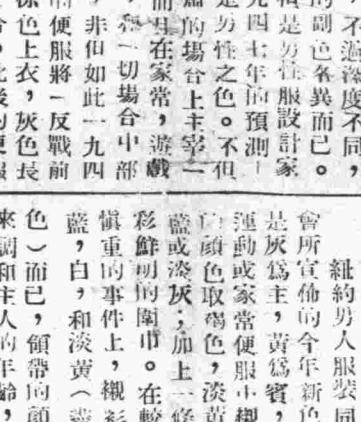 ，不過濃度不同，
的副色各異而已。
是男性服設計家
九四七年的預測—
是男性之色。不但
的場合上主宰一
而且在家常，遊戲
一切場合中都
非但如此一九四
的便服將一反戰前
色上衣，灰色長
紐約男人服裝同
會所宣佈的今年新色
是灰爲主，黃爲賓，
運動或家常便服中襯
顏色取褐色，淡黃
藍或淡灰；加上一條
彩鮮明的圍巾。在較
愼重的事件上，襯衫
藍，白，和淡黃（
色）而已，領帶的顏
來調和主人的年齡，